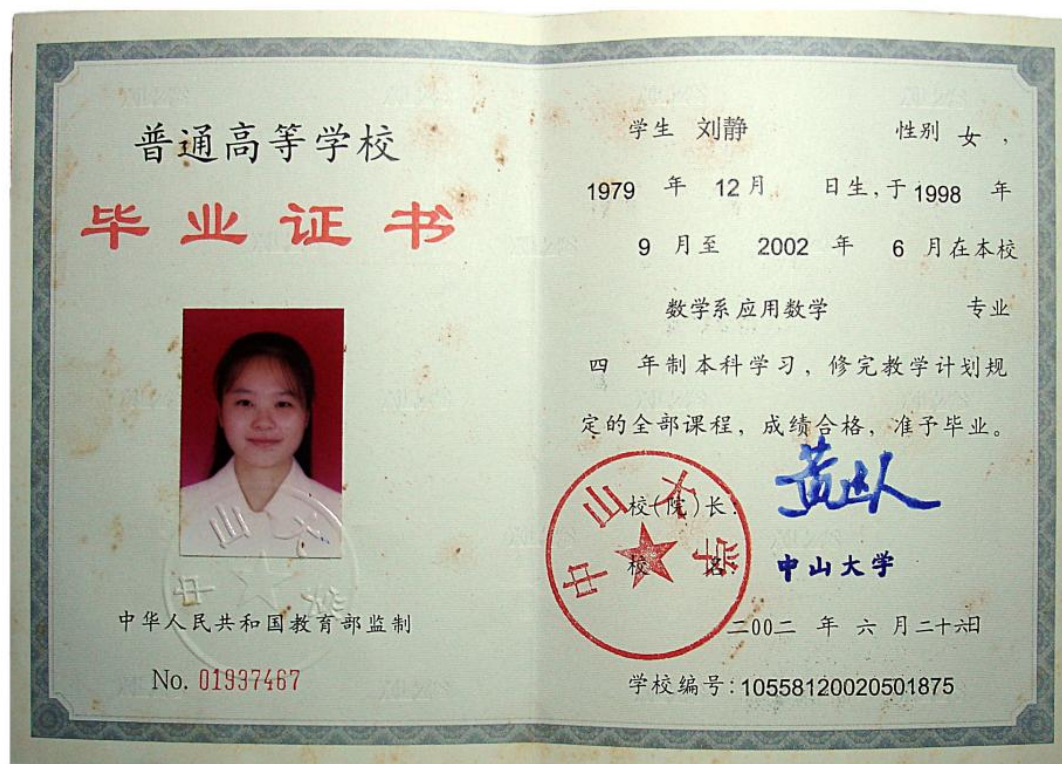 普通高等学校
毕业证书
中山大学
中华人民共和国教育部监制
No. 01937467
学生 刘静 性别 女，
1979 年 12月 日生，于1998 年
9 月至 2002 年 6 月在本校
数学系应用数学 专业
四 年制本科学习，修完教学计划规
定的全部课程，成绩合格，准予毕业。
校(院)长： 黄达人
校 名： 中山大学
中山大学
二00二 年 六 月二十六日
学校编号：10558120020501875